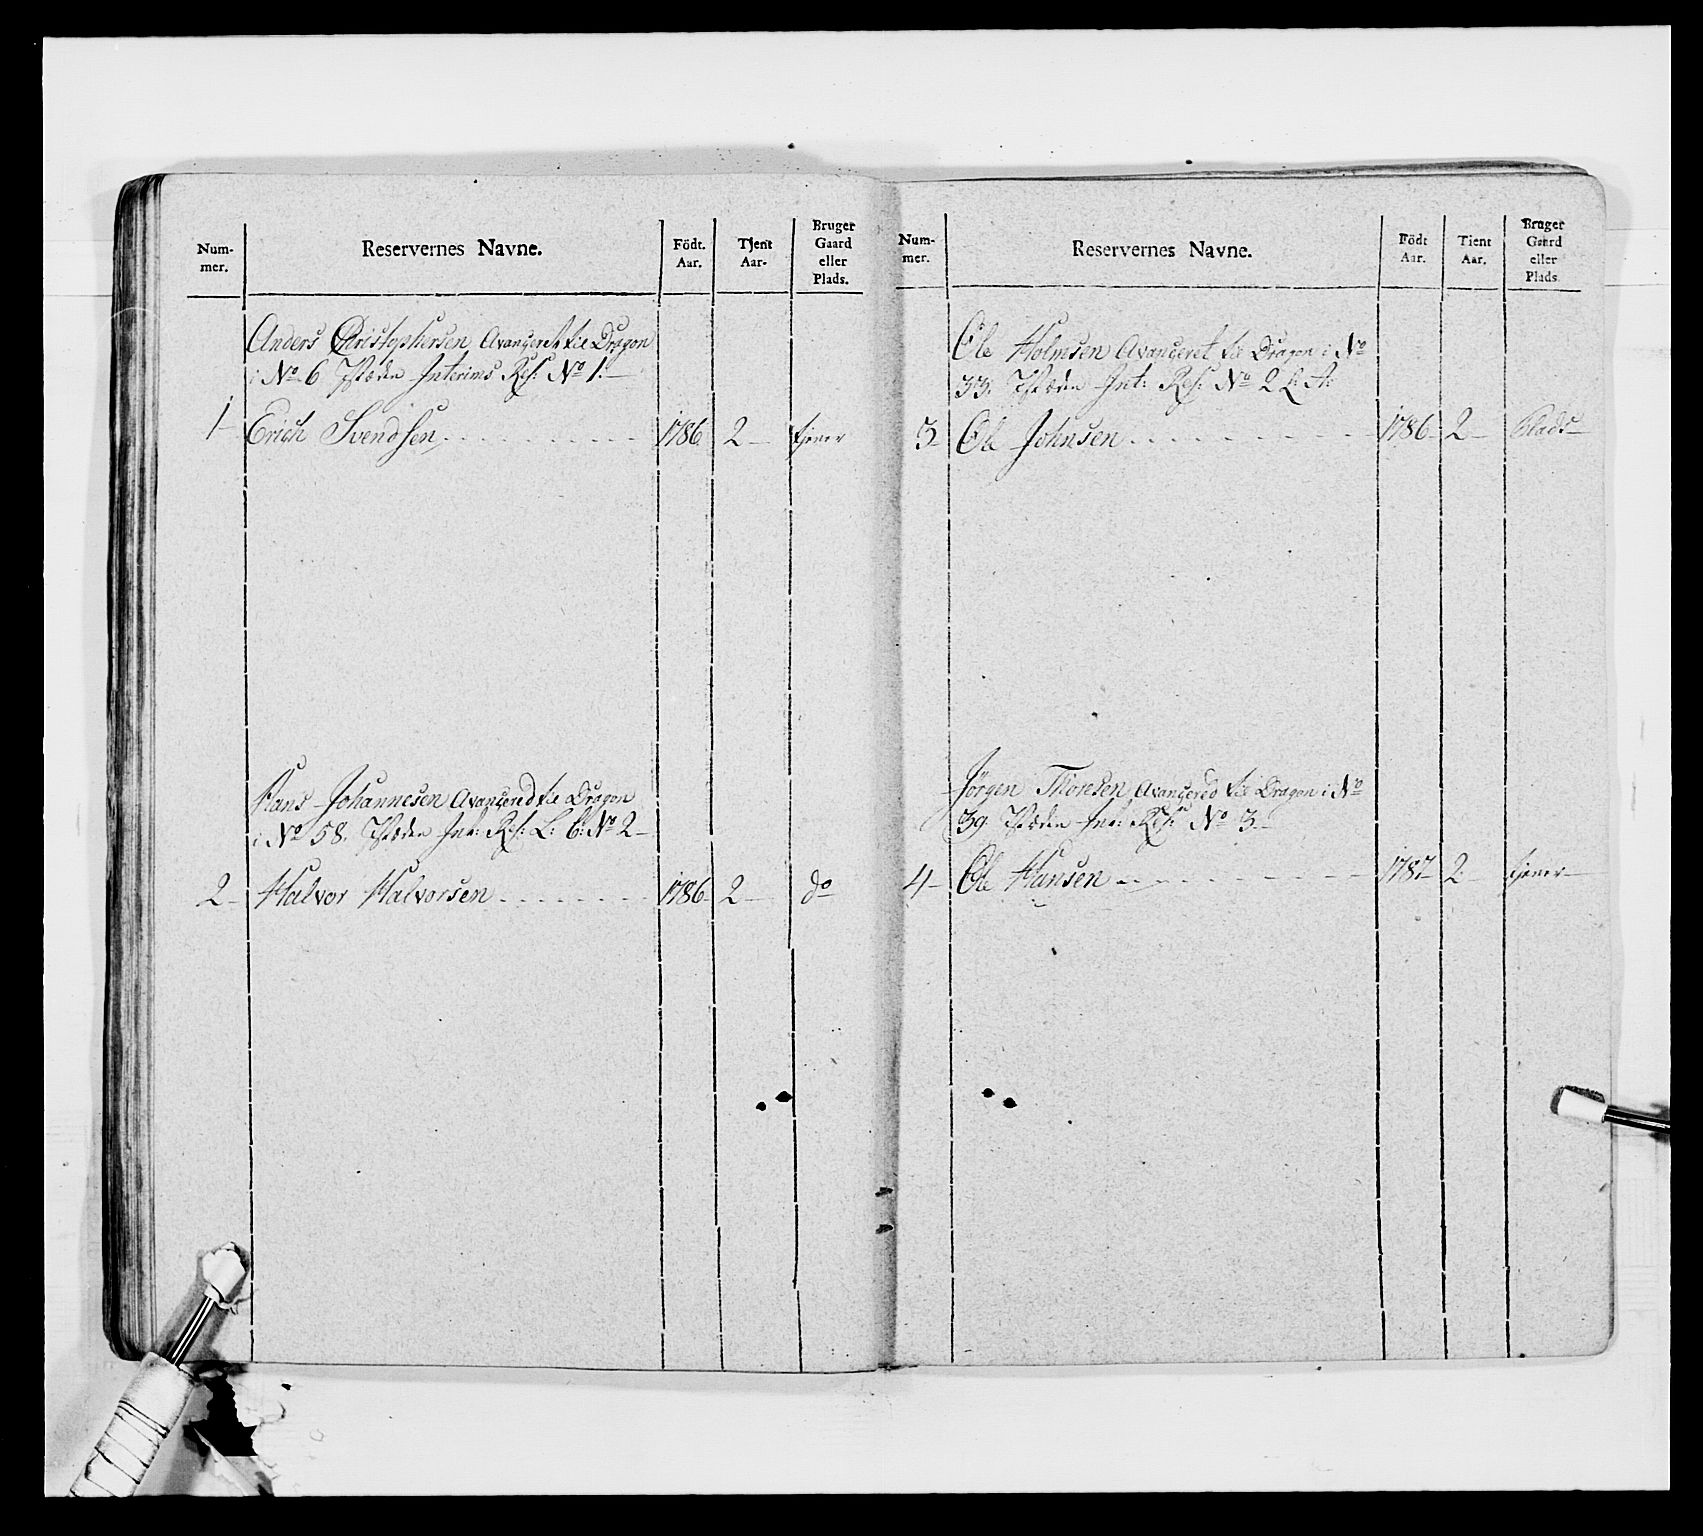 Num-
mer.
Reservernes Navne.
Födt.
Aar.
Tjent
Aar.
Bruger
Gaard
eller
Plads.
Anders Christophersen Avanceret til Dragon
i No 6 Isteden Interims Res: No 1.
1 Erich Svendsen 1786 2 tjener
Hans Johannesen Avancered til Dragon
i No 58. Isteden Int: Res: L: b: No 2
2 Halvor Halvorsen 1786 2 do
Num-
mer.
Reservernes Navne.
Födt
Aar.
Tient
Aar.
Bruger
Gaard
eller
Plads.
Ole Holmsen Avanceret til Dragon i No
33. Isteden Int: Res: No 2 L: A:
3 Ole Johnsen 1786 2 Plads
Jørgen Thoresen Avancered til Dragon i No
39 Isteden Int: Res: No 3.
4 Ole Hansen 1787 2 tjener